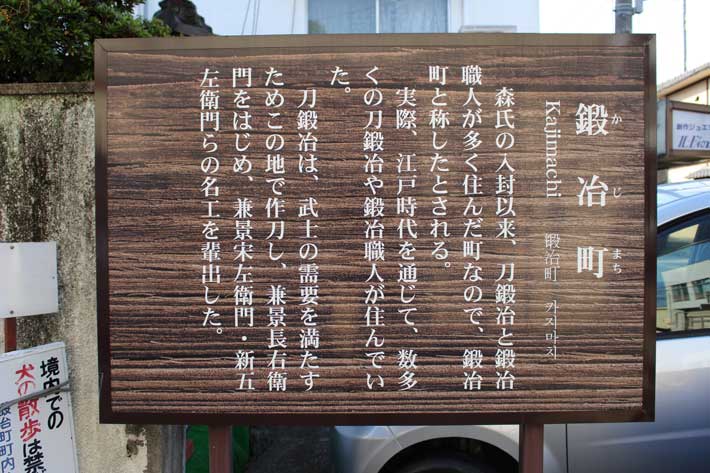 鍛冶町
かじまち
Kajimachi 鍛冶町 카지마치
森氏の入封以来、刀鍛冶と鍛冶
職人が多く住んだ町なので、鍛冶
町と称したとされる。
実際、江戸時代を通じて、数多
くの刀鍛冶や鍛冶職人が住んでい
た。
刀鍛冶は、武士の需要を満たす
ためこの地で作刀し、兼景長右衛
門をはじめ、兼景宋左衛門・新五
左衛門らの名工を輩出した。
境内での
犬の散歩は禁
鍛治町町内
創作ジュエ